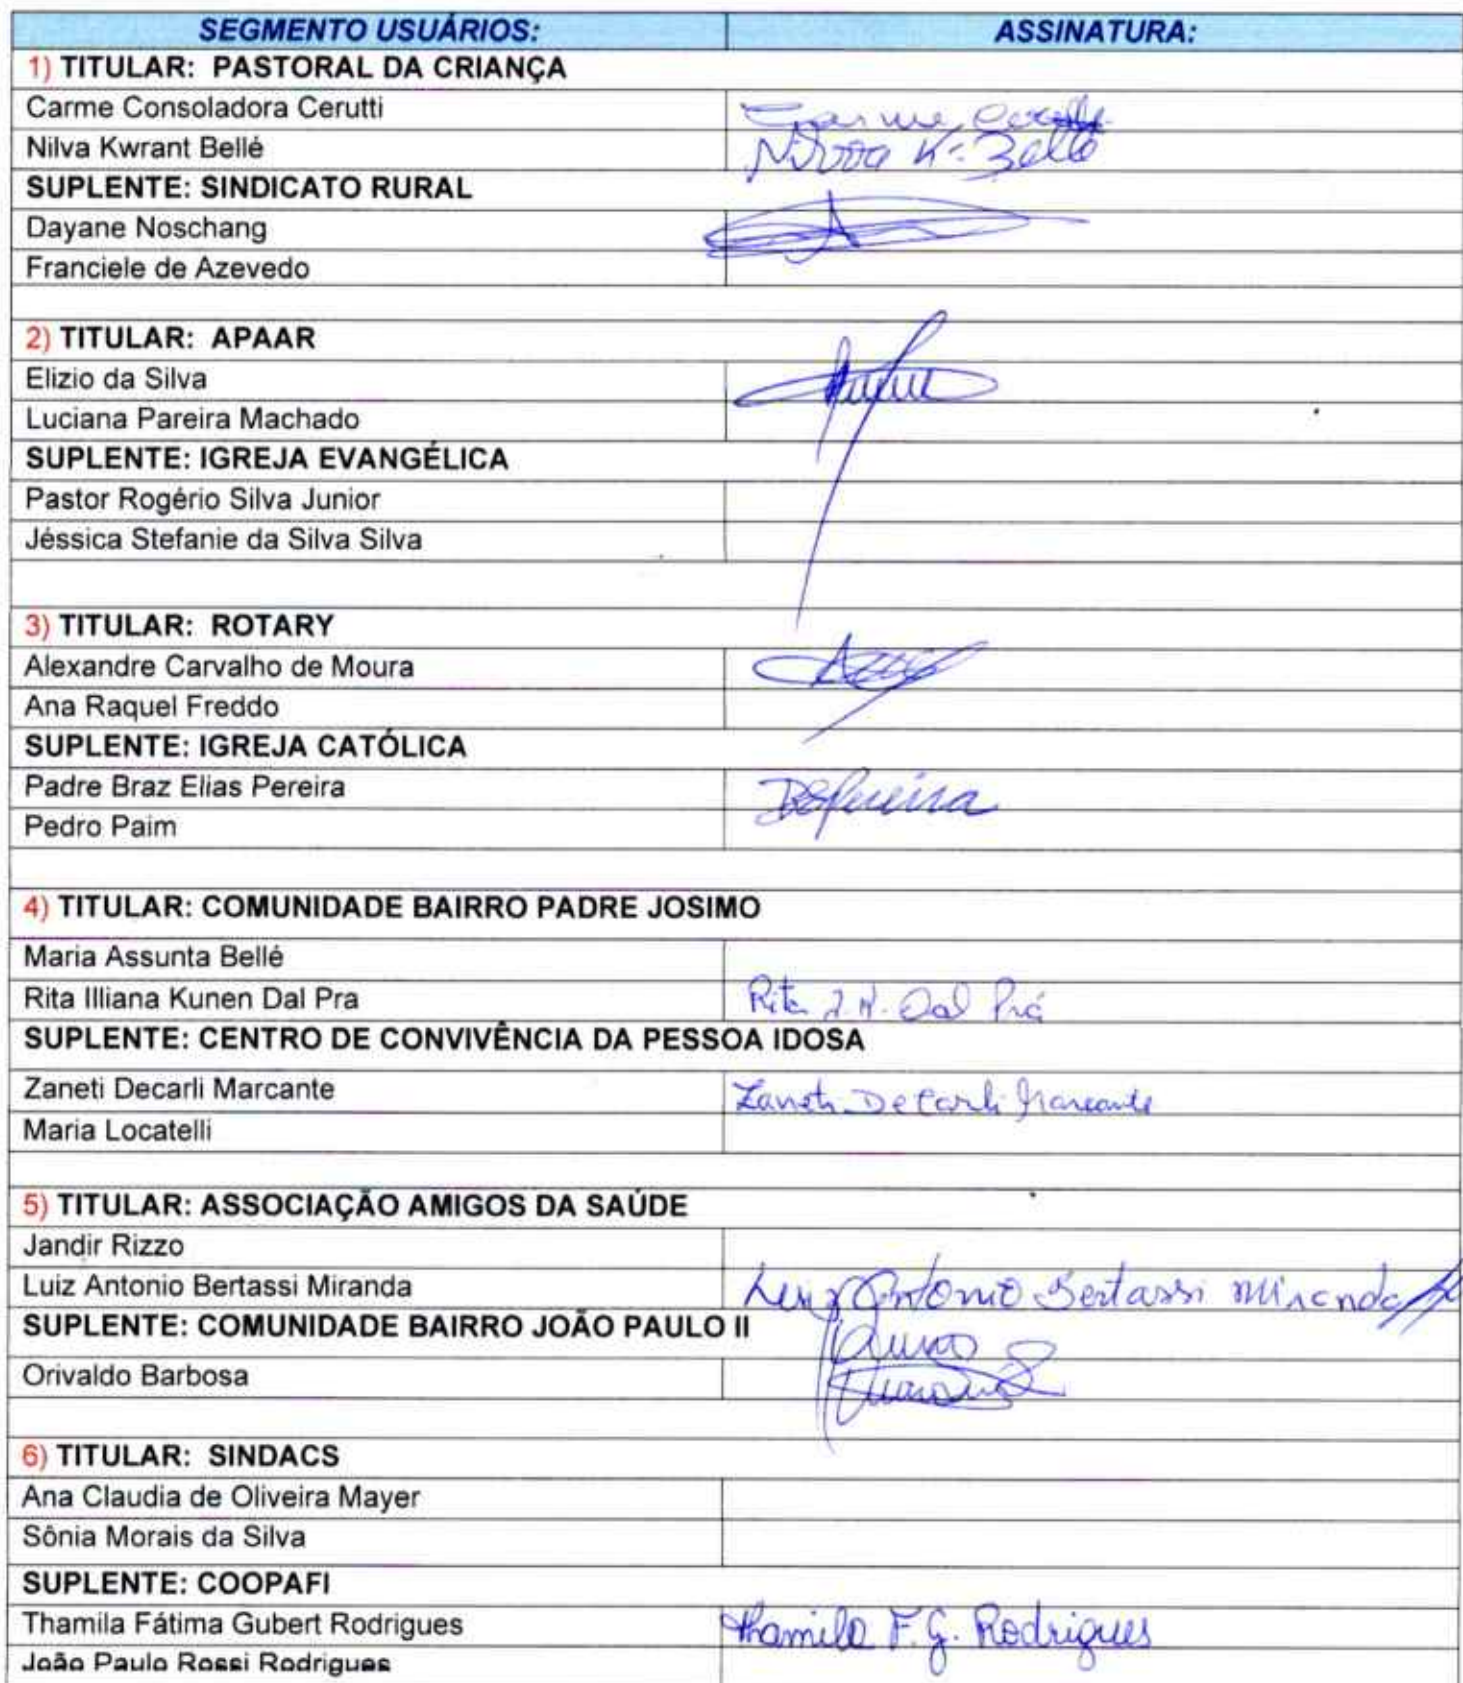 SEGMENTO USUÁRIOS: ASSINATURA:
1) TITULAR: PASTORAL DA CRIANÇA
Carme Consoladora Cerutti Carme
Nilva Kwrant Bellé Nilva K. Bellé
SUPLENTE: SINDICATO RURAL
Dayane Noschang
Franciele de Azevedo
2) TITULAR: APAAR
Elizio da Silva
Luciana Pareira Machado
SUPLENTE: IGREJA EVANGÉLICA
Pastor Rogério Silva Junior
Jéssica Stefanie da Silva Silva
3) TITULAR: ROTARY
Alexandre Carvalho de Moura
Ana Raquel Freddo
SUPLENTE: IGREJA CATÓLICA
Padre Braz Elias Pereira BEPereira
Pedro Paim
4) TITULAR: COMUNIDADE BAIRRO PADRE JOSIMO
Maria Assunta Bellé
Rita Illiana Kunen Dal Pra Rita I. K. Dal Prá
SUPLENTE: CENTRO DE CONVIVÊNCIA DA PESSOA IDOSA
Zaneti Decarli Marcante Zaneti Decarli Marcante
Maria Locatelli
5) TITULAR: ASSOCIAÇÃO AMIGOS DA SAÚDE
Jandir Rizzo
Luiz Antonio Bertassi Miranda Luiz Antonio Bertassi Miranda
SUPLENTE: COMUNIDADE BAIRRO JOÃO PAULO II
Orivaldo Barbosa
6) TITULAR: SINDACS
Ana Claudia de Oliveira Mayer
Sônia Morais da Silva
SUPLENTE: COOPAFI
Thamila Fátima Gubert Rodrigues Thamila F. G. Rodrigues
João Paulo Rossi Rodrigues